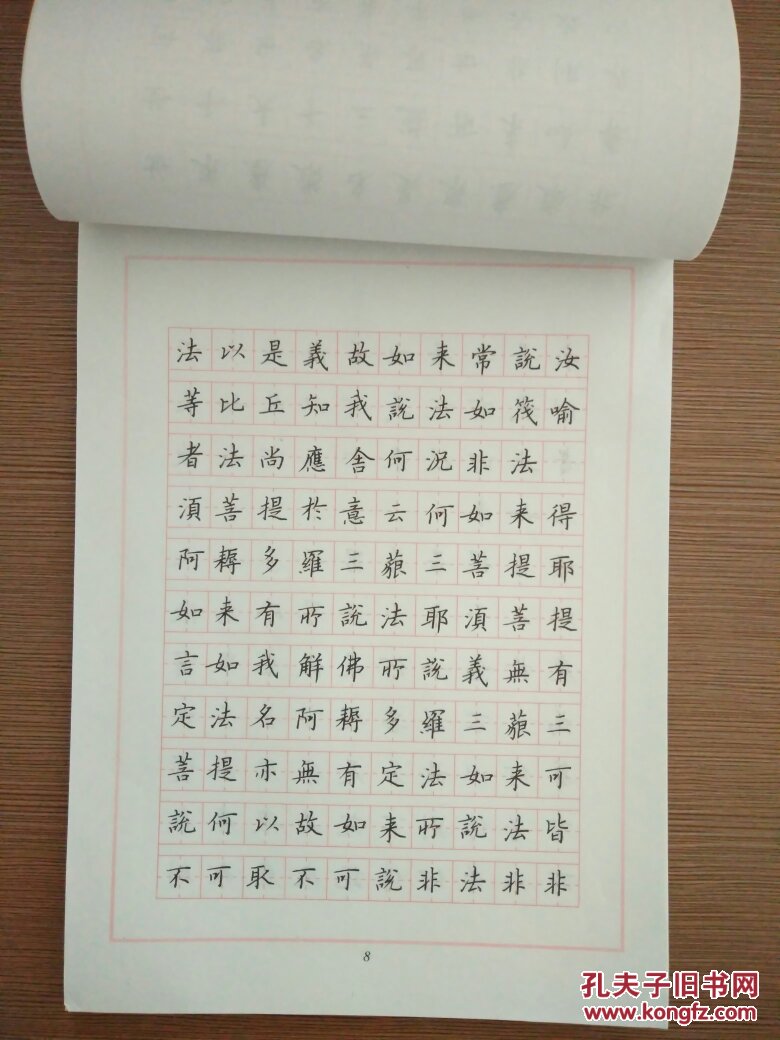 法以是義故如来常說汝
等比丘知我說法如筏喻
者法尚應舍何況非法
湏菩提扵意云何如来得
阿耨多羅三藐三菩提耶
如来有所說法耶湏菩提
言如我解佛所說義無有
定法名阿耨多羅三藐三
菩提亦無有定法如来可
說何以故如来所說法皆
不可取不可說非法非非
8
孔夫子旧书网
www.kongfz.com